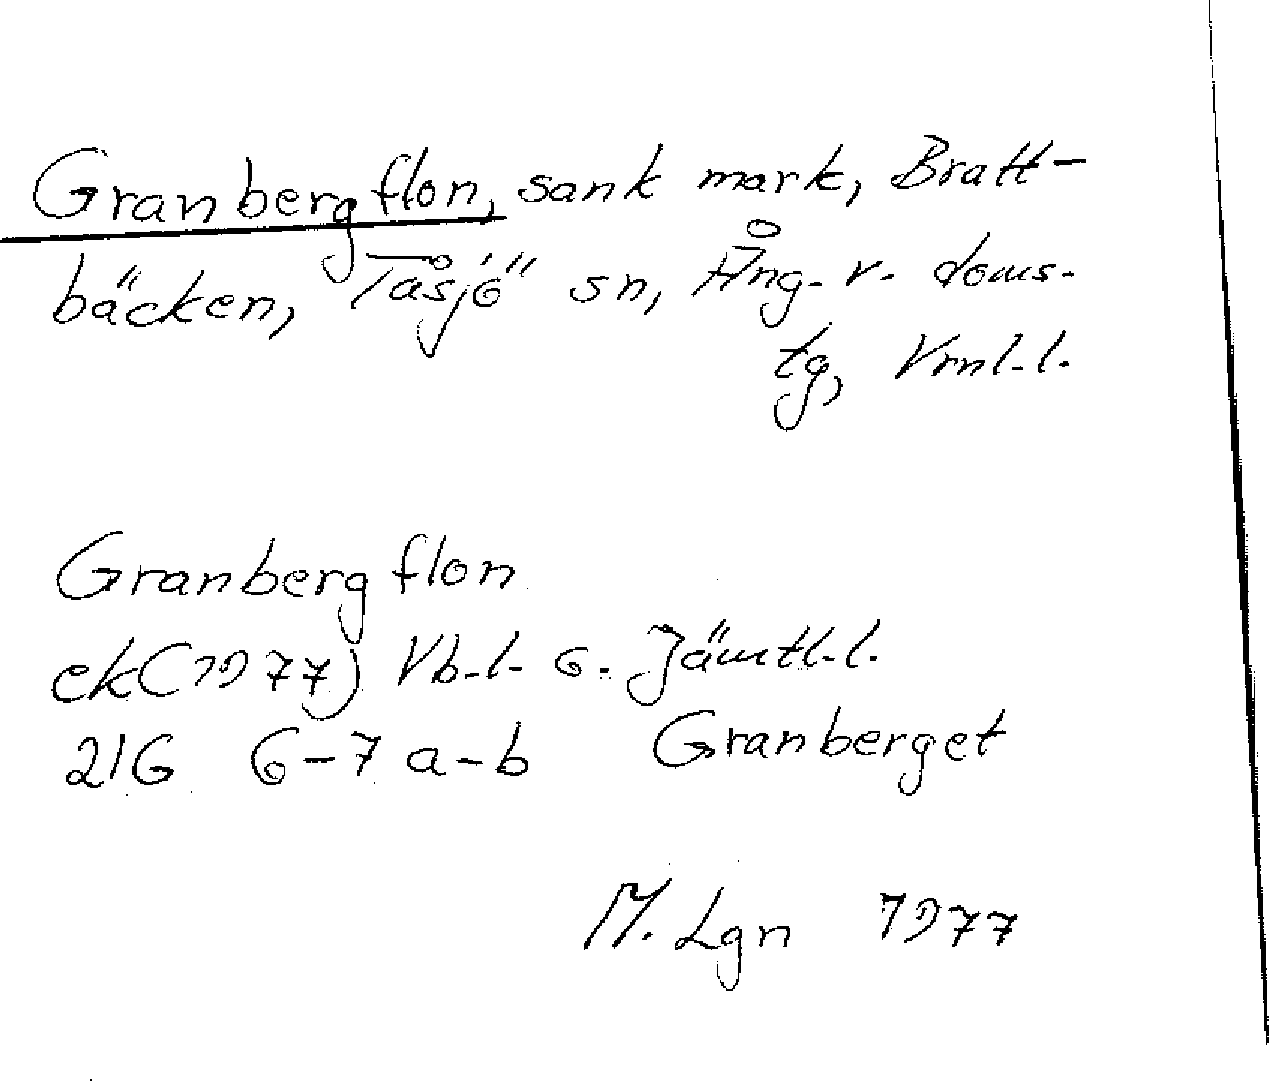 Granbergflon, sank mark, Bratt-
bäcken, Tåsjö sn, Ång. v. doms.
tg, Vrnl. l.
Granbergflon
ek(1977) Vb. l. o. Jämtl. l.
21G 6-7 a-b Granberget
M. Lgn 1977